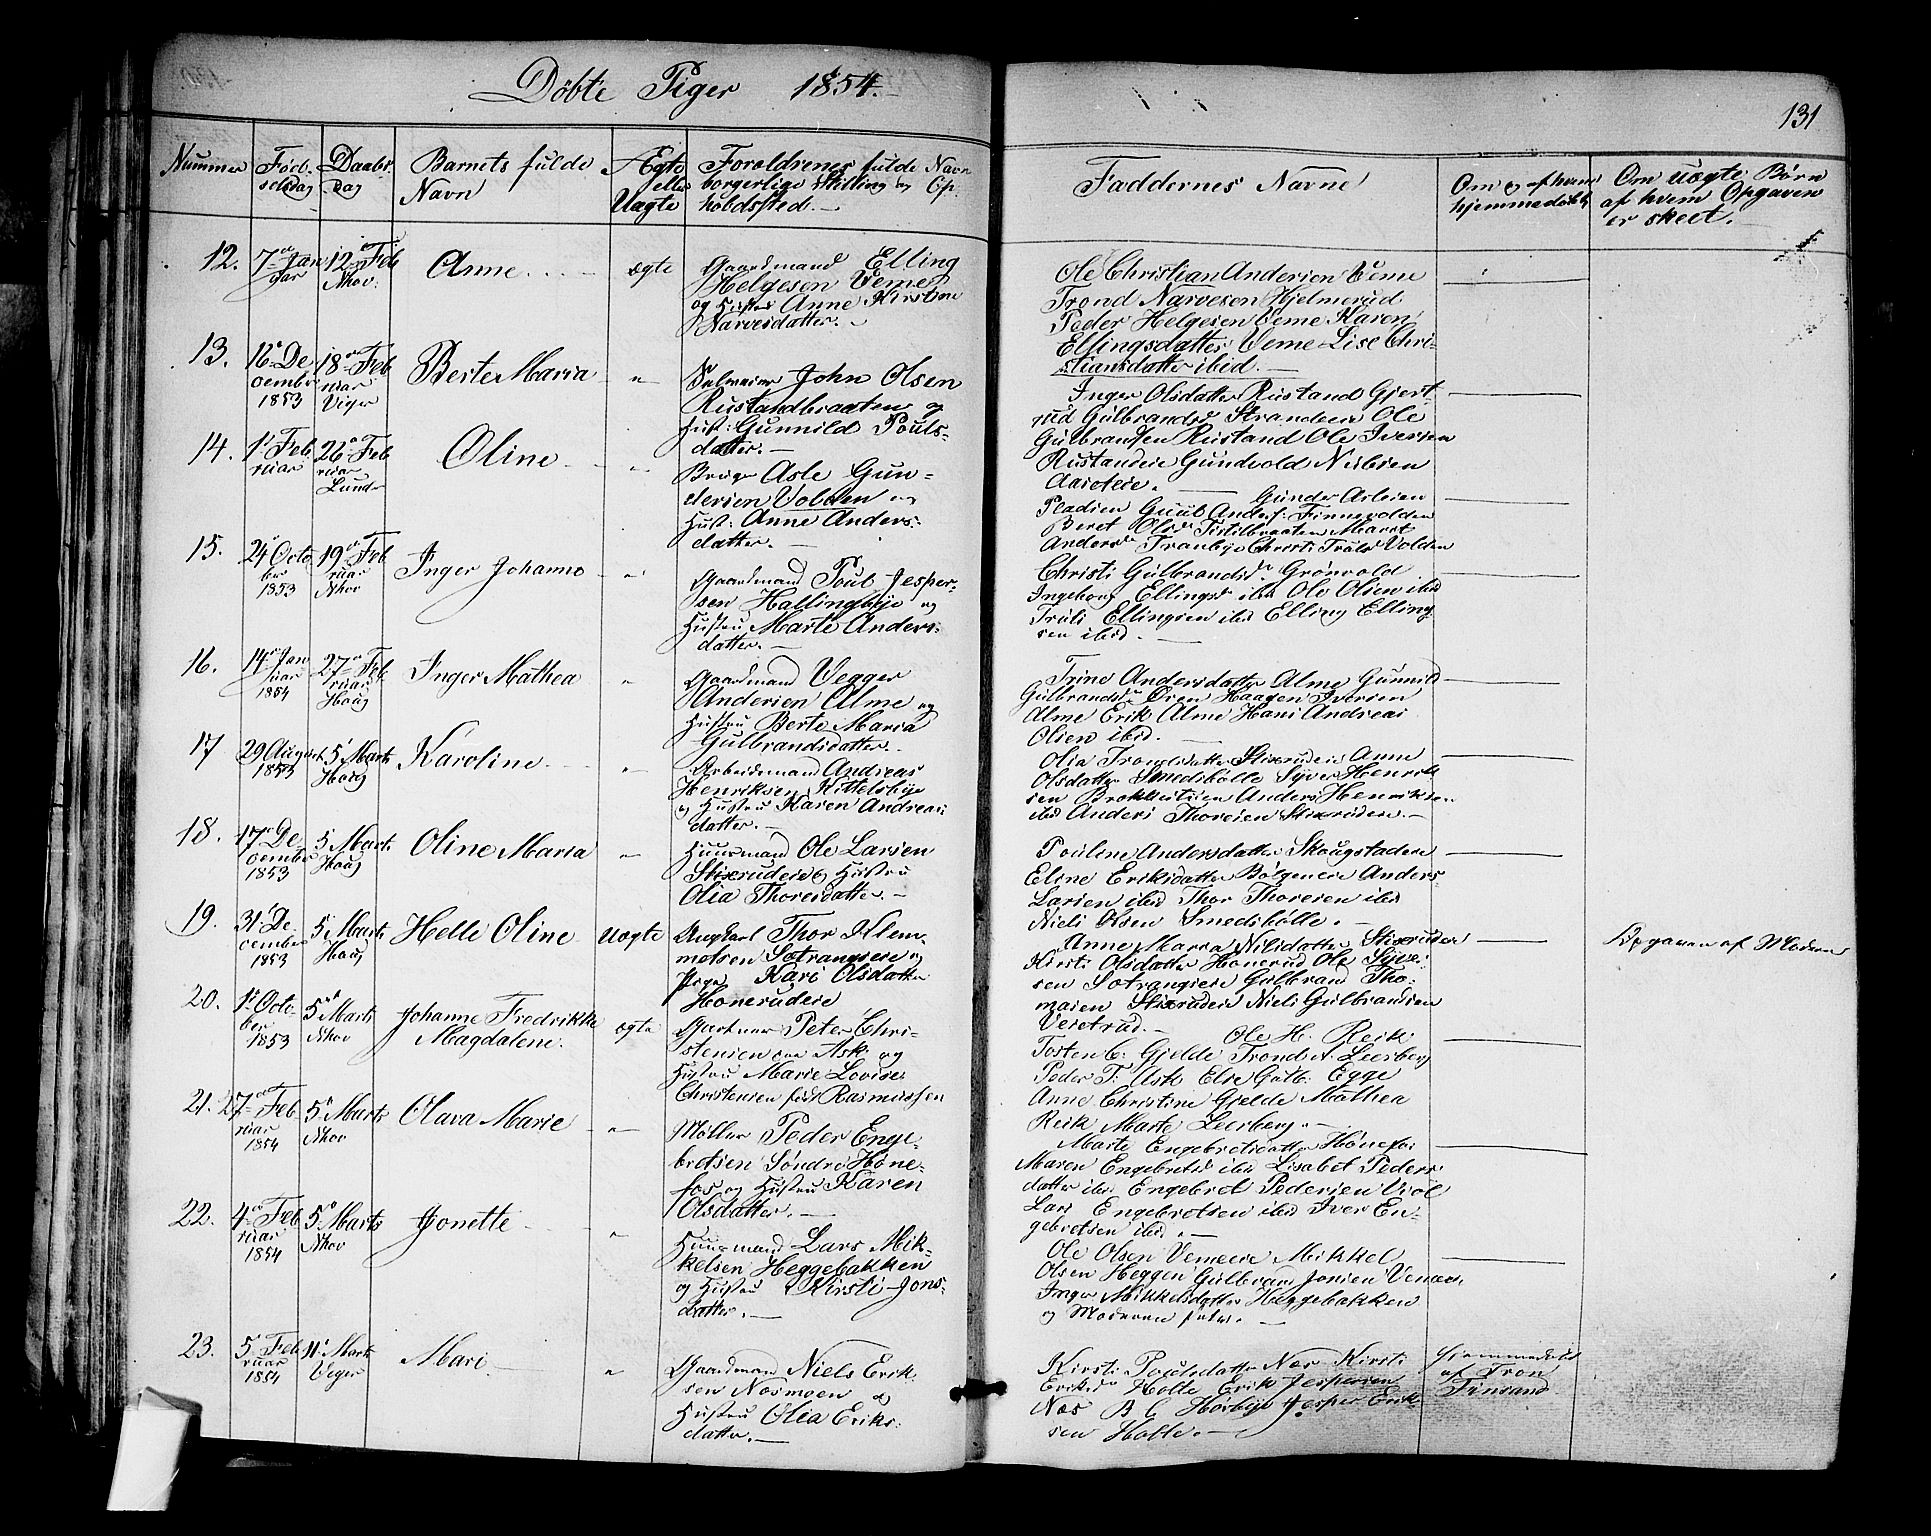 Døbte Piger 1854.
131
Nummer Fødselsdag Daabsdag Barnets fulde Navn Ægte eller Uægte Forældrenes fulde Navn borgerlige Stilling og Opholdsted.
Faddernes Navne Om og af hvem hjemmedøbt Om uægte Børn af hvem Opgaven er skeet.
12. 7de Januar 12te Feb Nhov. Anne ægte
Gaardmand Elling
Helgesen Veme
og Hustru Anne Kirstine
Narvesdatter.
Ole Christian Andersen Veme
Trond Narvesen Hjelmerud
Peder Helgesen Veme Karen
Ellingsdatter Veme Lise Chri-
stiansdatter ibid.
13. 16de December 1853 18de Februar Viger Berte Maria "
John Olsen
Rustandbraaten og
Hust: Gunnild Pouls-
datter.
Inger Olsdatter Rustand Gjert-
rud Gulbrandsd Strandeie Ole
Gulbrandsen Rustand Ole Iversen
Rustandeie Gundvold Nielsen
14. 1ste Februar 26de Februar Lunder Oline "
Bruger Asle Gun-
dersen Volden og
Hust: Anne Anders-
datter.
Gunder Aslesen
Pladsen Gulb Anders: Finnevolden
Beret Olsdr Tistilbraaten Maret
Andersdr Tranbye Christi Trulsd Volden
15. 24de October 1853 19de Februar Nhov Inger Johanne "
Gaardmand Poul Jesper-
sen Hallingbye og
Hustru Marte Anders-
datter.
Christi Gulbrandsdr Grønvold
Ingeborg Ellingsdr ibid Ole Olsen ibid
Truls Ellingsen ibid Elling Elling-
sen ibid.
16. 14de Januar 1854 27de Februar Haug Inger Mathea "
Gaardmand Vegger
Andersen Alme og
Hustru Berte Maria
Gulbrandsdatter.
Trine Andersdatter Alme Gunnild
Gulbrandsdr Øren Haagen Iversen
Alme Erik Alme Hans Andreas
Olsen ibid.
17 29 August 1853 5te Marts Haug Karoline "
Arbeidsmand Andreas
Henriksen Kittelsbye
og Hustru Karen Andreas-
datter.
Olia Trondsdatter Stixrudeie Anne
Olsdatter Smedsbølle Syver Henrik-
sen Anders Henriksen
ibid Anders Thoresen Stixrudeie.
18. 17de December 1853 5te Marts Haug Oline Maria "
Huusmand Ole Larsen
Stixrudeie og Hustru
Olia Thoresdatter.
Pouline Andersdatter Skougstadeie
Eline Eriksdatter Bølgeneie Anders
Larsen ibid Thor Thoresen ibid
Niels Olsen Smedsbølle.
19. 31te December 1853 5te Marts Haug Helle Oline Uægte
Ungkarl Thor Hlem-
metsen Sotrangseie og
Pige Kari Olsdatter
Honerudeie
Anne Maria Nilsdatter Stixrudeie
Kirsti Olsdatter Honerud Ole Syver-
sen Sotrangseie Gulbrand Tho-
masen Stixrudeie Niels Gulbrandsen
Vestrud.
Opgaven af Moderen
20. 1ste October 1853 5te Marts Nhov Johanne Fredrikke Magdalene. ægte
Gartner Peter Chri-
stensen paa Ask og
Hustru Marie Lovise
Christensen født Rasmussen
Ole H. Reik
Tosten C. Gjelde Trond A. Leerberg
Peder T. Ask Else Gulb: Egge
Anne Christine Gjelde Mathea
Reik Marte Leerberg.
21. 27de Februar 1854 5te Marts Nhov Olava Marie "
Møller Peder Enge-
bretsen Søndre Høne-
fos og Hustru Karen
Olsdatter.
Marte Engebretsdatter Hønefos
Maren Engebretsd ibid Lisabet Peders-
datter ibid Engebret Pedersen Viol
Lars Engebretsen ibid Iver En-
gebretsen ibid.
22. 4de Februar 1854 5te Marts Nhov Jonette "
Huusmand Lars Mik-
kelsen Heggebakken
og Hustru Kirsti Jons-
datter.
Ole Olsen Vemeeie Mikkel
Olsen Heggen Gulbrand Jonsen Vemeeie
Inger Mikkelsdatter Heggebakken
og Moderen selv.
23. 5te Februar 1854 11te Marts Viger Mari "
Gaardmand Niels Erik-
sen Nosmoen og
Hustru Olia Eriks-
datter.
Kirsti Poulsdatter Næs Kirsti
Eriksdr Holte Erik Jespersen
Næs B C Horbye Jesper Erik-
sen Holte.
Hjemmedøbt
af Tron
Finsand